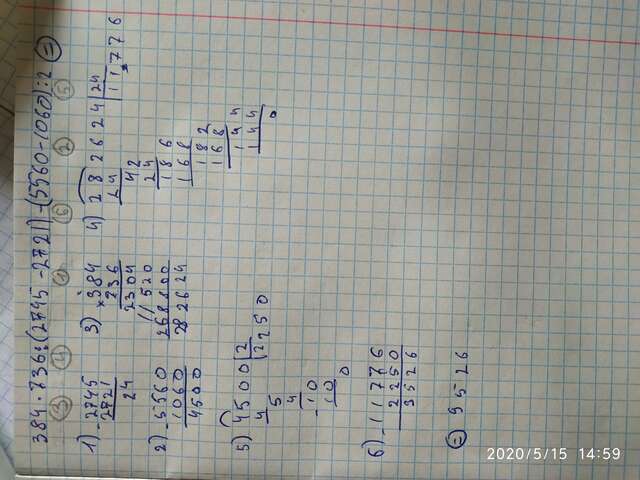 384·736:(2745-2721)-(5560-1060):2 =
3 4 1 6 2 5
1) -2745
2721
24
2) -5560
1060
4500
3) ×384
736
2304
11520
268800
282624
4) 282624|24
24 |11776
42
24
186
168
182
168
144
144
0
5) 4500|2
4 |2250
5
4
-10
10
0
6) -11776
2250
9526
= 9526
2020/5/15 14:59